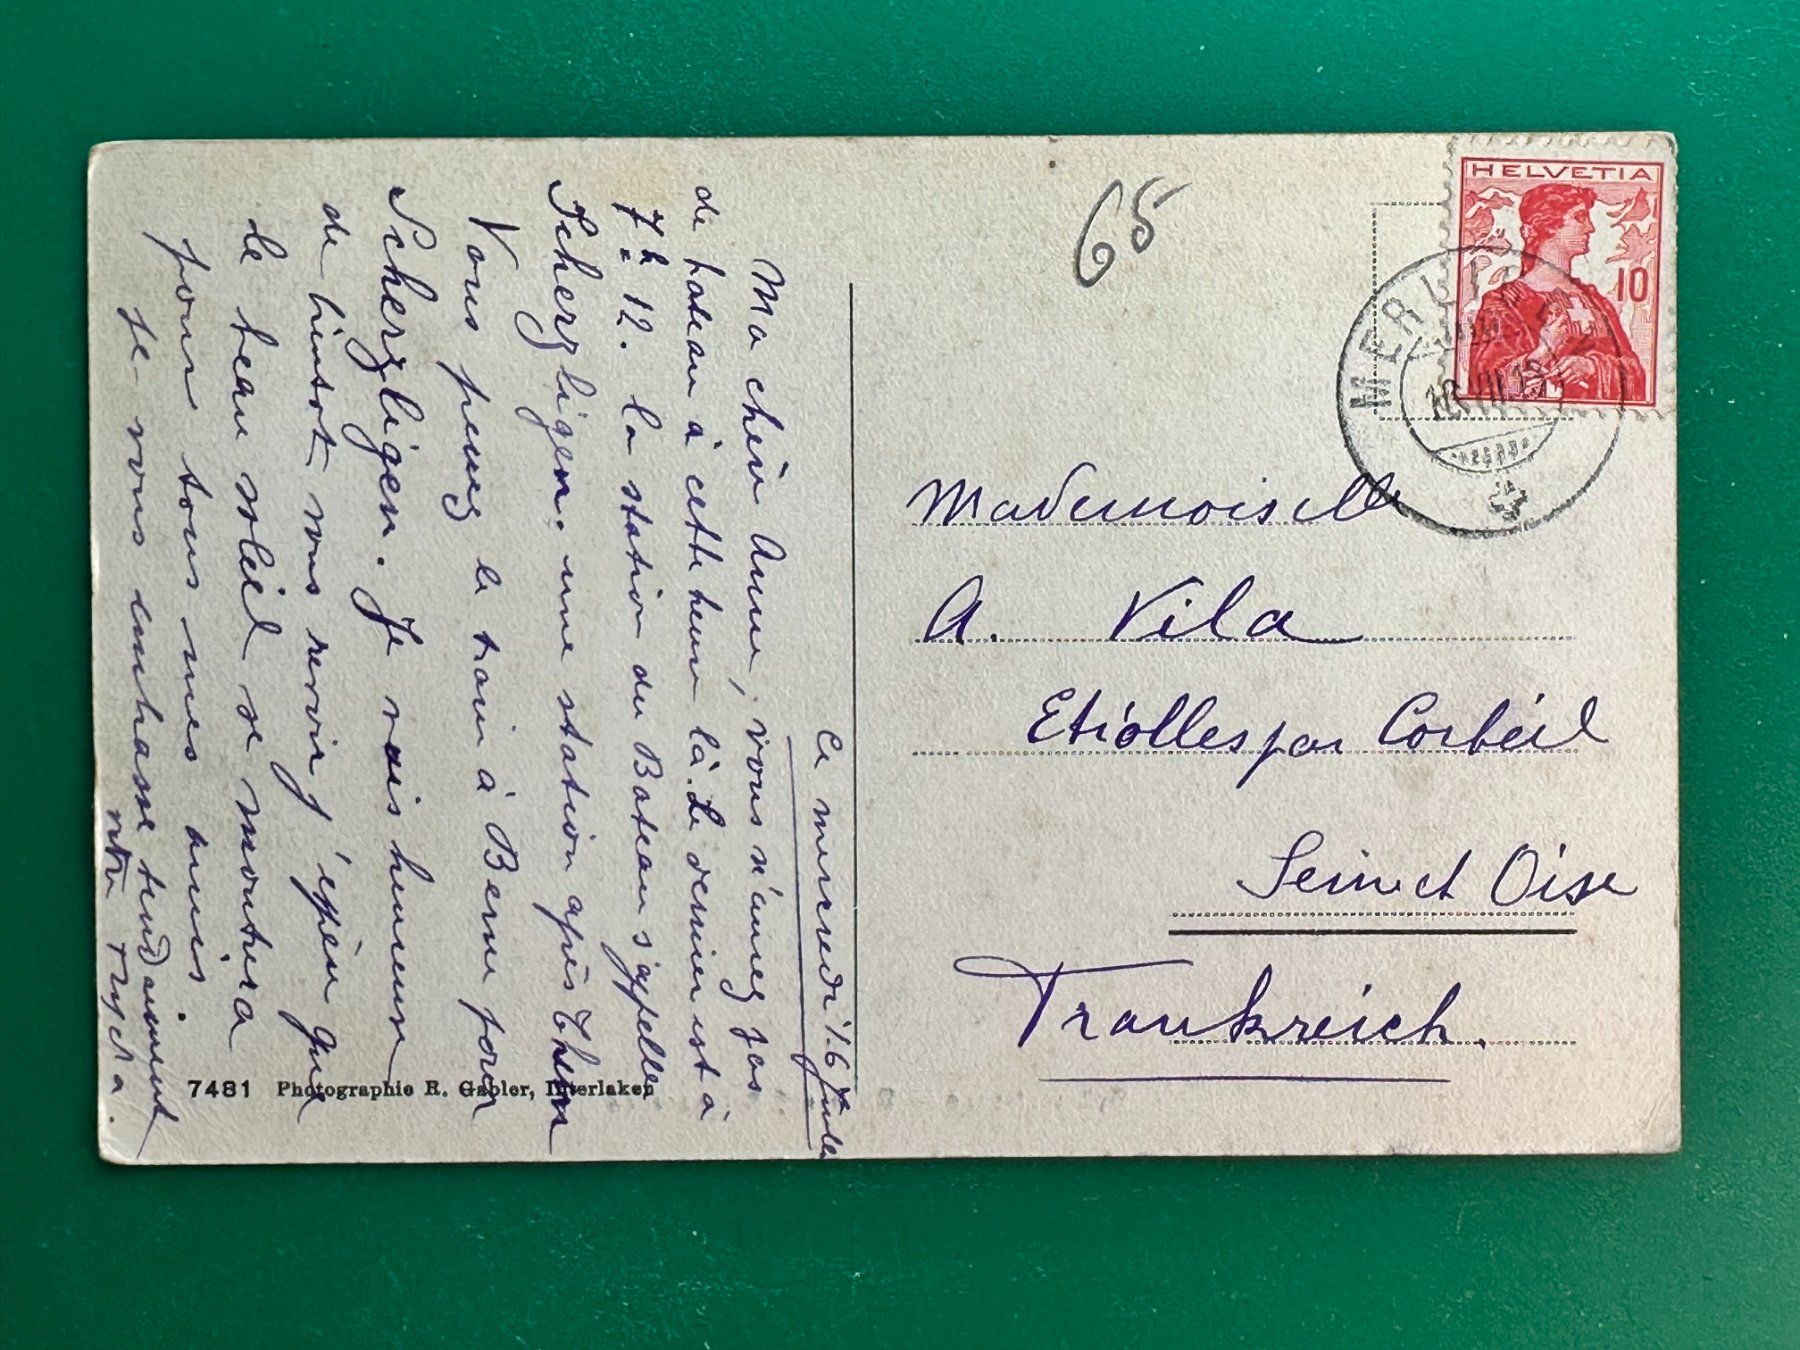 Ce mercredi 16 Juillet
Ma chère Anne, vous n'aurez pas
de bateau à cette heure là. Le dernier est à
7h 12. la station du Bateau s'appelle
Scherzligen. une station après Thun
Vous prenez le train à Berne pour
Scherzligen. Je vais heureux
de bientot vous revoir j'éspère que
le beau soleil se montrera
pour tous mes amis.
Je vous embrasse tendrement
votre
7481 Photographie R. Gabler, Interlaken
65
HELVETIA
10
MERLIGEN
Mademoiselle
A. Vila
Etiolles par Corbéil
Seine et Oise
Frankreich.